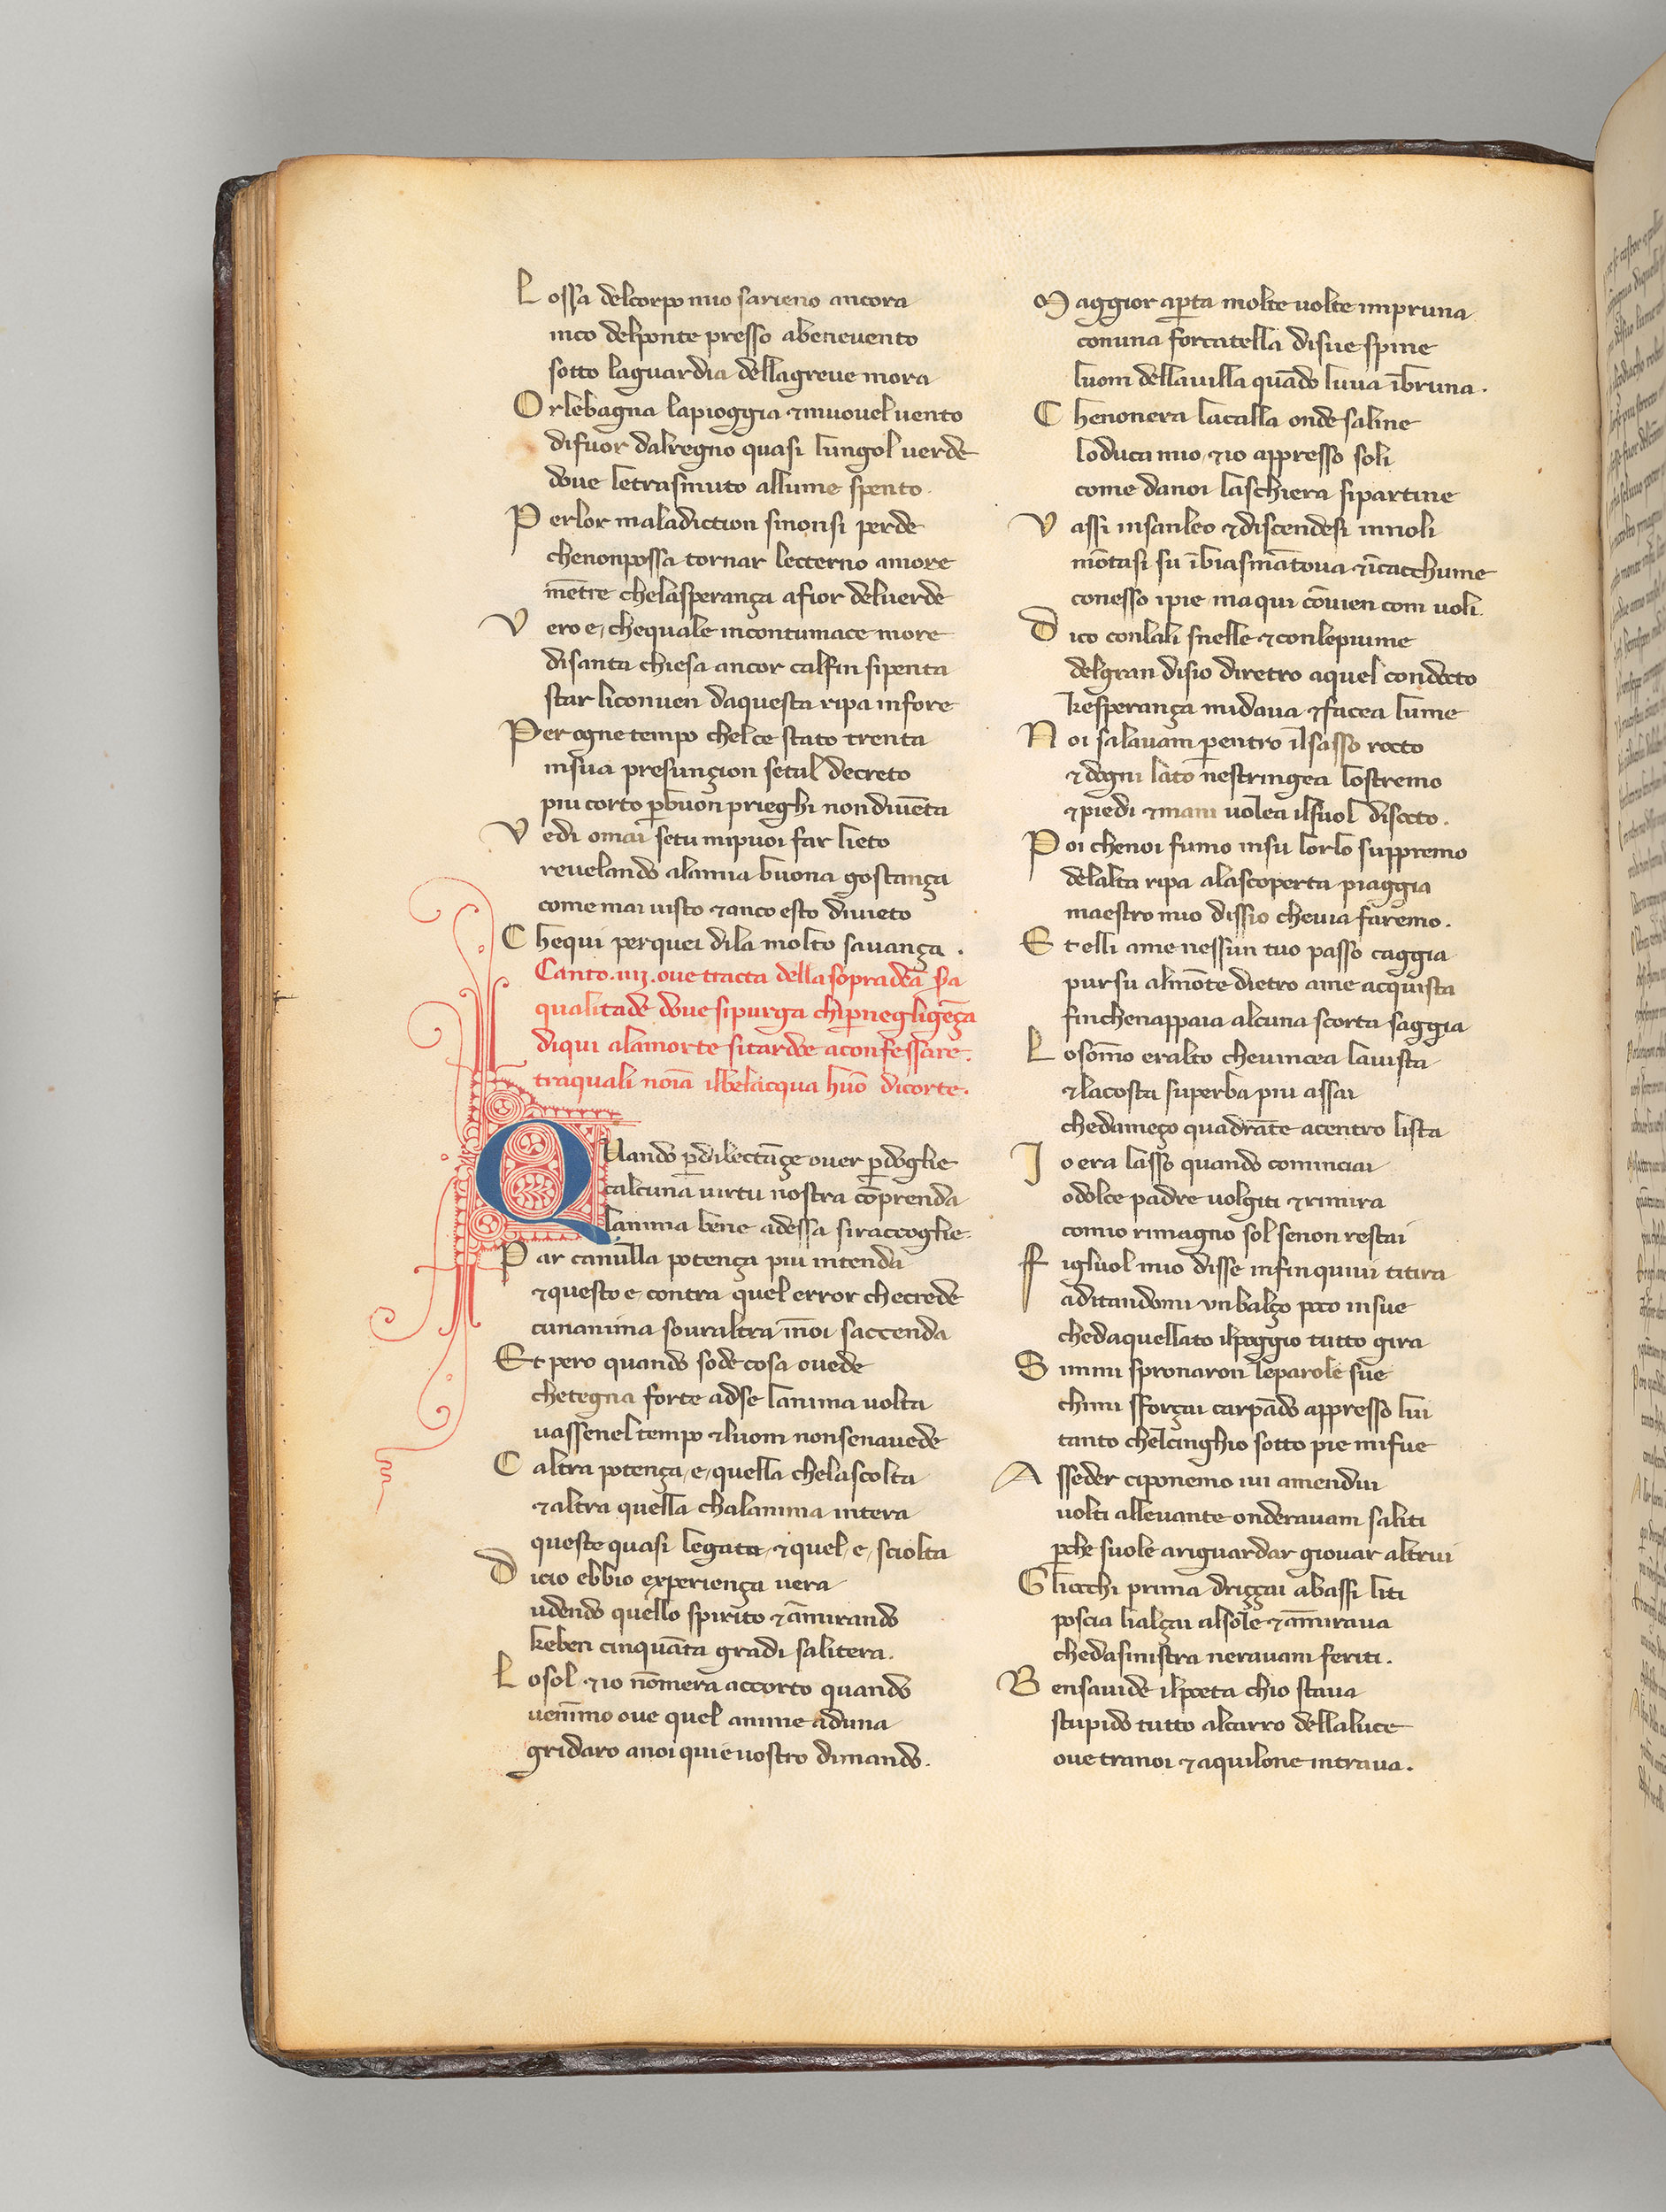 L ossa delcorpo mio sarieno ancora
inco delponte presso abenevento
sotto laguardia dellagreve mora
O rlebagna lapioggia ⁊muovel vento
difuor dalregno quasi lungol verde
dove letrasmuto allume spento.
P erlor maladiction sinonsi perde
chenonpossa tornar lecterno amore
mẽtre chelasperança afior delverde
V ero e, chequale incontumace more
disanta chiesa ancor calfin sipenta
star liconven daquesta ripa infore
Per ogne tempo chelce stato trenta
insua presunçion setal decreto
piu corto ꝑbuon prieghi non divẽta
V edi omai setu mipuoi far lieto
revelando alamia buona gostança
come mai visto ⁊anco esto divieto
C hequi perquei dila molto savança .
Canto .iiij. ove tracta della sopradc̃a
qualitade dove sipurga chiꝑnegligẽça
diqui alamorte sitardoe aconfessare.
traquali noĩa ilbelacqua huõ dicorte.
QUando ꝑdilectãçe over ꝑdoglie
calcuna virtu nostra cõprenda
lanima bene adessa siraccoglie.
P ar canulla potença piu intenda
⁊questo e contra quel error checrede
cunanima sovraltra ĩnoi saccenda
Et pero quando sode cosa ovede
chetegna forte adse lanima volta
vassenel tempo ⁊luom nonsenavede
C altra potença, e, quella chelascolta
⁊altra quella chalanima intera
queste quasi legata, ⁊quel, e, sciolta
D icio ebbio experiença vera
udendo quello spirito ⁊ãmirando
keben cinquãta gradi salitera.
L osol ⁊io nõmera accorto quando
venĩmo ove quel anime aduna
gridaro anoi quievostro dimando.
M aggior aꝑta molte volte impruna
conuna forcatella disue spine
luom dellavilla quãdo luva ĩbruna.
C henonera lacalla onde saline
loduca mio, ⁊io appresso soli
come danoi laschiera sipartine
V assi insanleo ⁊discendesi innoli
mõtasi su ĩbiasmãtova ⁊ĩcacchume
conesso ipie ma qui cõvien com voli.
D ico conlali snelle ⁊conlepiume
delgran disio diretro aquel condocto
kesperança midava ⁊facea lume
N oi salavam ꝑentro ilsasso rocto
⁊dogni lato nestringea lostremo
⁊piedi ⁊mani volea ilsuol disocto.
P oi chenoi fumo insu lorlo suppremo
delalta ripa alascoperta piaggia
maestro mio dissio chevia faremo.
E t elli ame nessun tuo passo caggia
pursu almõte dietro ame acquista
finchenappaia alcuna scorta saggia
L osom̃o eralto chevincea lavista
⁊lacosta superba piu assai
chedameço quadrãte acentro lista
I o era lasso quando cominciai
odolce padre volgiti ⁊rimira
comio rimagno sol senon restai
ff igluol mio disse infinquivi titira
aditandomi vnbalço poco insue
chedaquellato ilpoggio tutto gira
S immi spronaron leparole sue
chimi sforçai carpãdo appresso lui
tanto chelcinghio sotto pie mifue
A sseder ciponemo ivi amendui
volti allevante onderavam saliti
ꝑche suole ariguardar giovar altrui
G liocchi prima driççai abassi liti
poscia lialçai alsole ⁊ãmirava
chedasinistra neravam feriti.
B ensavide ilpoeta chio stava
stupido tutto alcarro dellaluce
ove tranoi ⁊aquilone intrava.